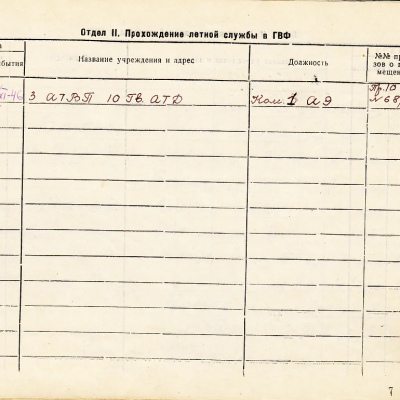 Отдел II. Прохождение летной службы в ГВФ
бытия Название учреждения и адрес Должность №№ пр
зов о п
мещен
XI-46 3 АТВП 10 Гв. АТД Ком. 1 АЭ Пр. 10
N 68
7